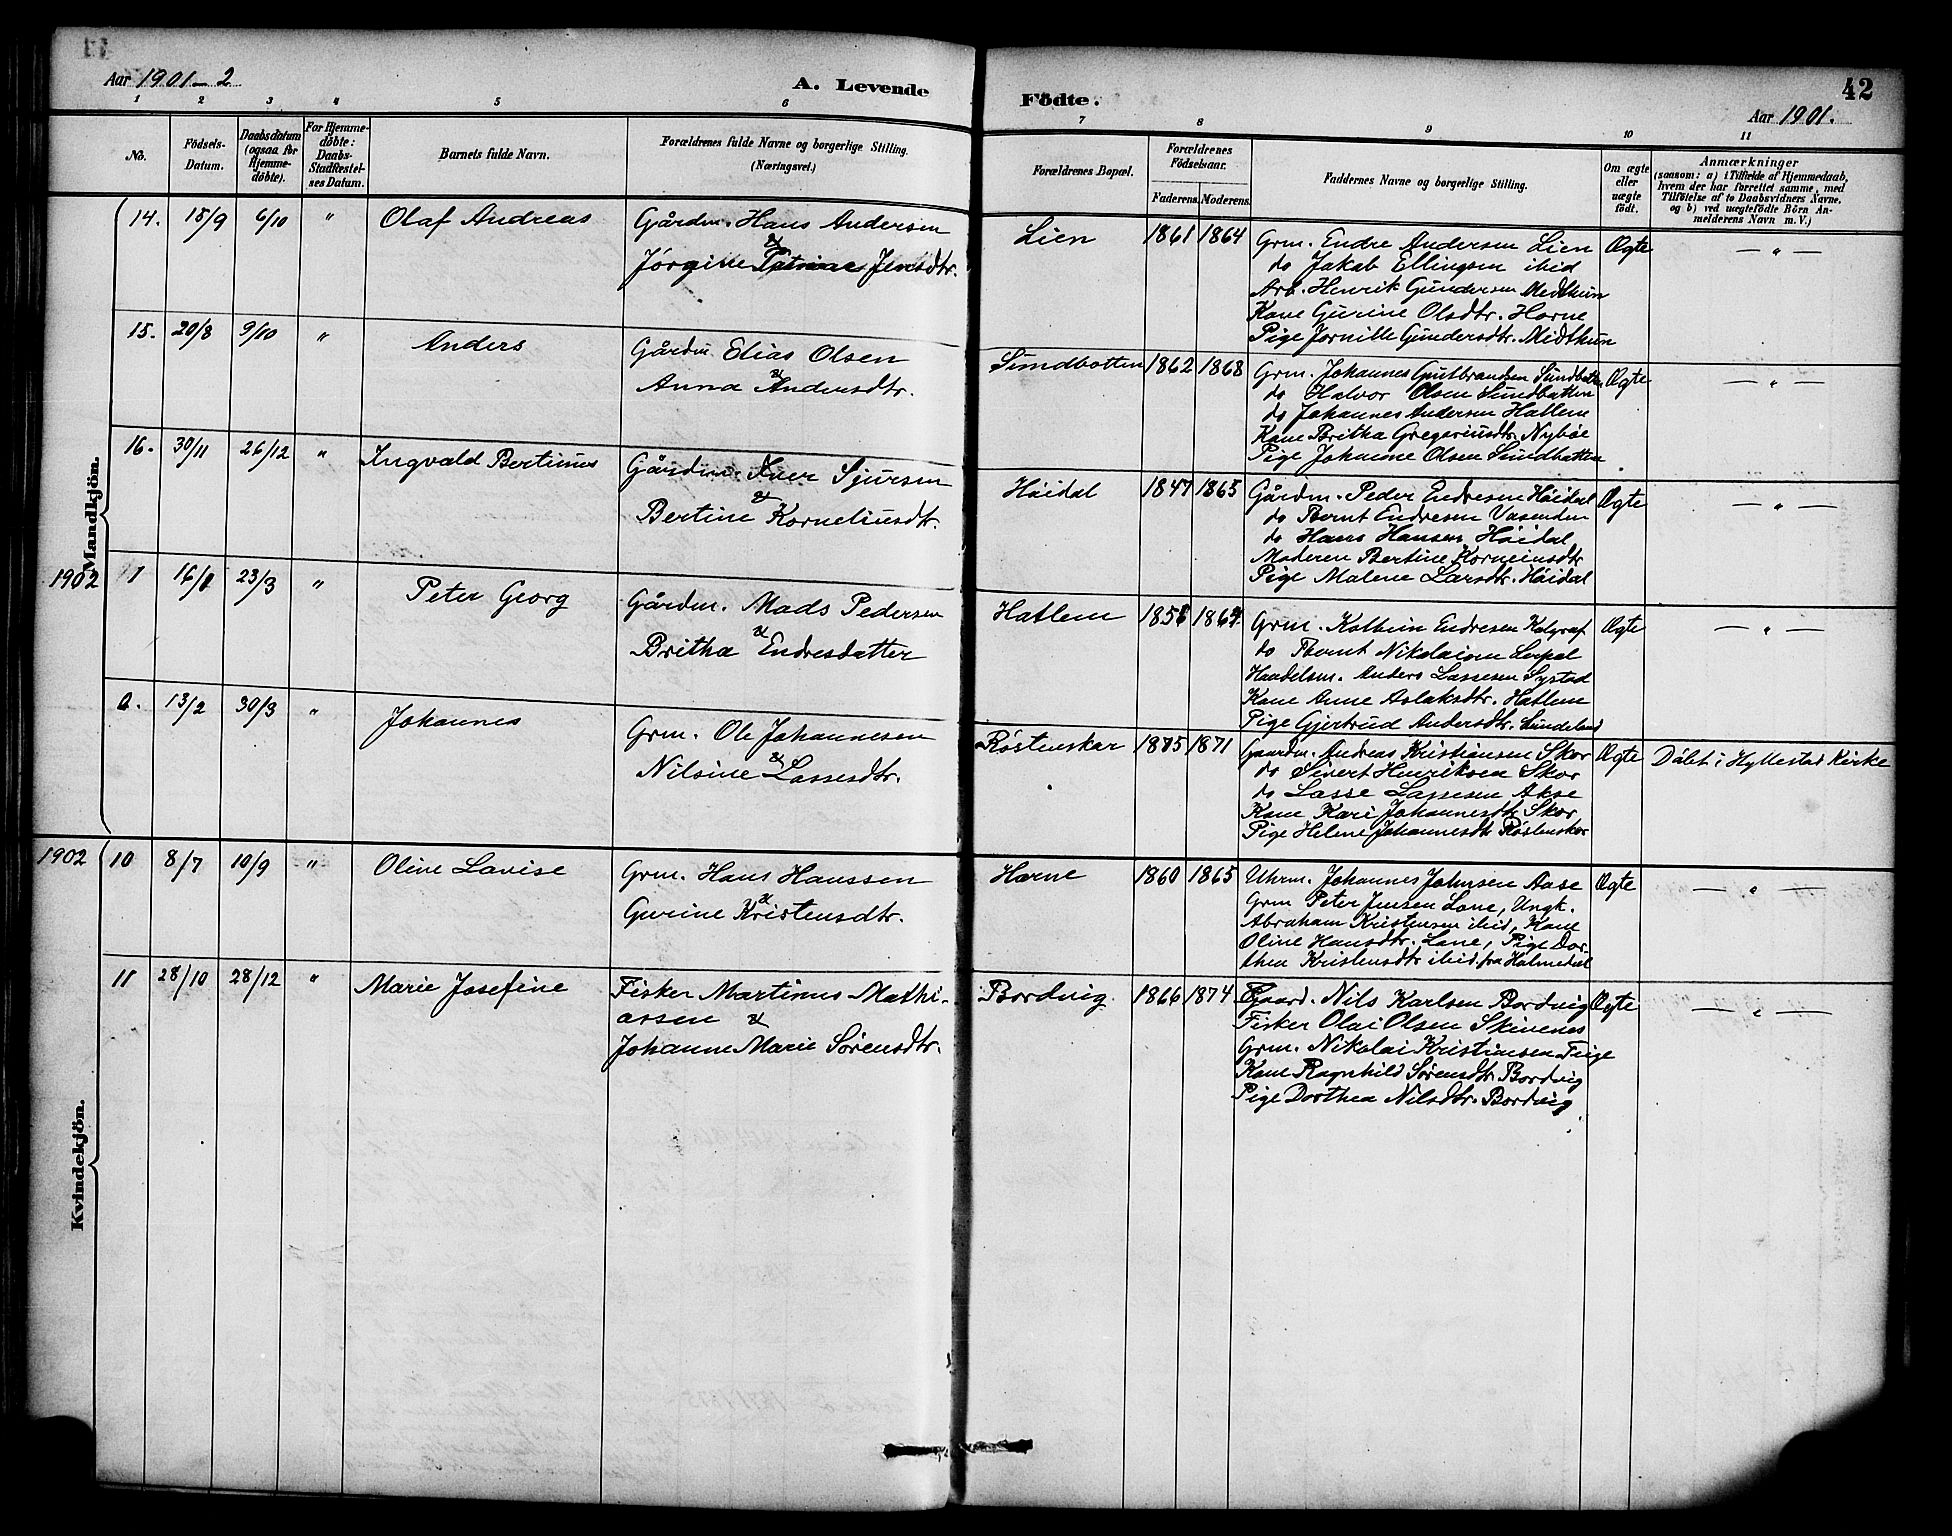 42
Aar 1901-2
A. Levende
Födte.
Aar 1901.
1 2 3 4 5 6 7 8 9 10 11
No.
Födsels-Datum.
Daabsdatum (ogsaa for Hjemme-döbte).
For Hjemme-döbte: Daabs-Stadfæstel-ses Datum.
Barnets fulde Navn.
Forældrenes fulde Navne og borgerlige Stilling. (Næringsvei.)
Forældrenes Bopæl.
Forældrenes Födselsaar.
Faderens. Moderens.
Faddernes Navne og borgerlige Stilling.
Om ægte eller uægte födt.
Anmærkninger
(sansom: a) i Tilfælde af Hjemmedaab,
hvem der har forrettet samme, med
Tilföielse af to Daabsvidners Navne.
og b) ved uægtefödte Börn An-
melderens Navn m. V.)
Mandkjön.
14. 15/9 6/10 " Olaf Andreas
Gårdm. Hans Andersen
&
Jørgine Jensdtr.
Lien 1861 1864
Grm. Endre Andersen Lien
do Jakob Ellingsen ibid
Arb. Henrik Gundersen Midthun
Kone Gurine Olsdtr. Horne
Pige Jornille Gundersdtr. Midthun
Ægte — " —
15. 20/8 9/10 " Anders
Gårdm. Elias Olsen
&
Anna Andersdtr.
Sundbotten 1862 1868
Grm. Johannes Gutbrandsen Sundbotten
do Halvor Olsen Sundbotten
do Johannes Andersen Hatlem
Kone Britha Gregoriusdtr. Nybøe
Pige Johanne Olsen Sundbotten
Ægte — " —
16. 30/11 26/12 " Ingvald Bertinus
Gårdm. Iver Sjursen
&
Bertine Korneliusdtr.
Høidal 1847 1865
Gårdm. Peder Endresen Høidal
do Bernt Endresen Vasenden
do Hans Hansen Høidal
Moderen Bertine Korneliusdtr
Pige Malene Larsdtr. Høidal
Ægte — " —
1902 1 16/1 23/3 " Peter Georg
Gårdm. Mads Pedersen
&
Britha Endresdatter
Hatlem
Grm. Endresen
do Bernt Nikolaisen
Handelsm. Anders Lassesen Systad
Kone Anne Aslaksdtr. Hatlem
Pige Gjertrud Andersdtr.
Ægte — " —
2. 13/2 30/3 " Johannes
Grm. Ole Johannesen
&
Nilsine Lassesdtr.
Røstenskar 1875 1871
Gaardm. Andreas Kristiansen Skor
do Sivert Henriksen Skor
do Lasse Lassesen Akse
Kone Kari Johannesdtr Skor
Pige Helene Johannesdtr Røstenskar
Ægte Døbt i Hyllestad Kirke
Kvindekjön.
1902 10 8/7 10/9 " Oline Lavise
Grm. Hans Hanssen
&
Gurine Kristensdtr.
Horne 1860 1865
Uhrm. Johannes Johnsen Aase
Grm Peter Jensen Lone, Ungk.
Abraham Kristensen ibid, Kone
Oline Hansdtr. Lone, Pige Dor-
thea Kristensdtr ibid. fra Holmedal
Ægte — " —
11 28/10 28/12 " Marie Josefine
Fisker Martinus Mathi-
assen &
Johanne Marie Sørensdtr.
Bordvig 1866 1874
Gaard. Nils Karlsen Bordvig
Fisker Olai Olsen Skivenes
Grm. Nikolai Kristiansen Teige
Kone Ragnhild Sørensdtr Bordvig
Pige Dorthea Nilsdtr. Bordvig
Ægte — " —